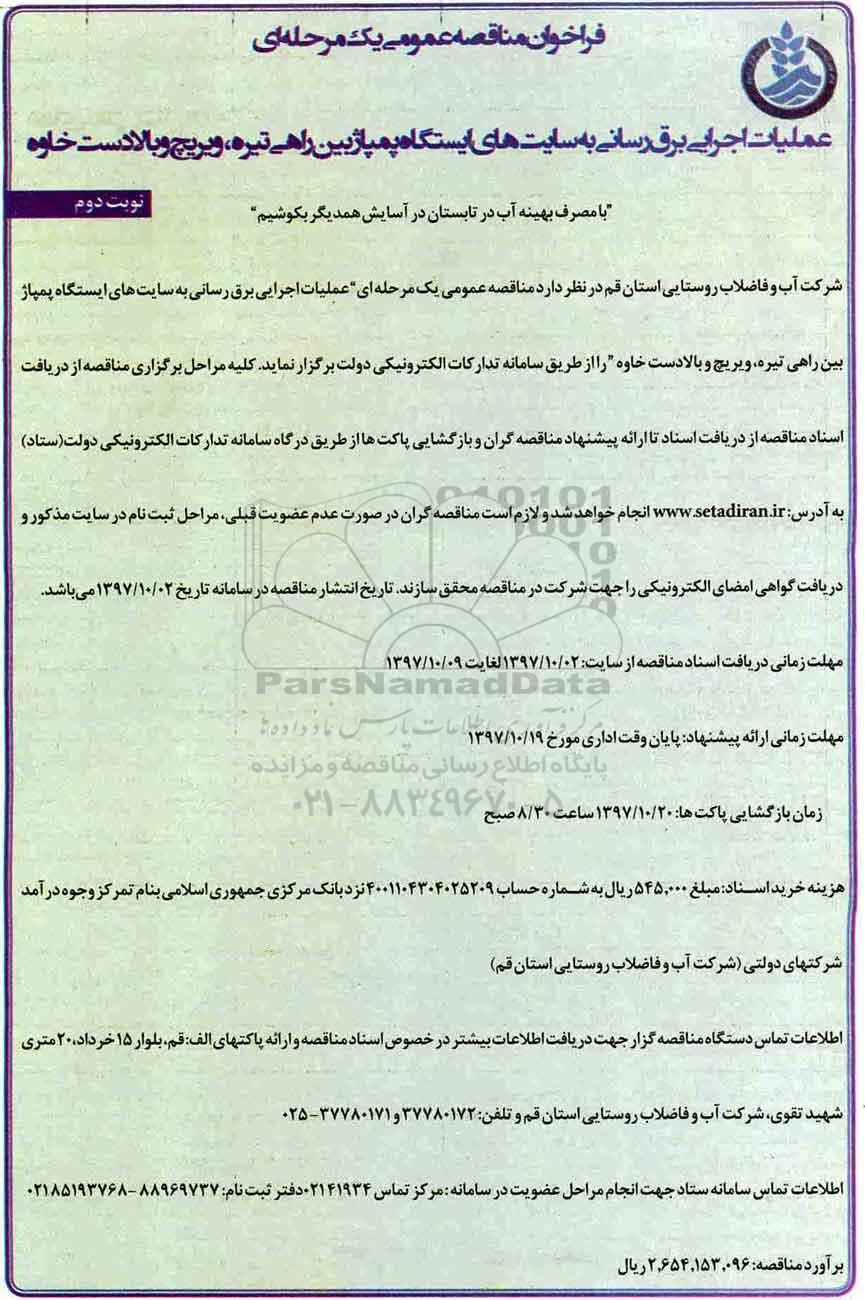 فراخوان مناقصه عمومی یک مرحله‌ای
عملیات اجرایی برق رسانی به سایت های ایستگاه پمپاژ بین راهی تیره، ویریچ و بالادست خاوه
نوبت دوم
"با مصرف بهینه آب در تابستان در آسایش همدیگر بکوشیم"
شرکت آب و فاضلاب روستایی استان قم در نظر دارد مناقصه عمومی یک مرحله ای "عملیات اجرایی برق رسانی به سایت های ایستگاه پمپاژ
بین راهی تیره، ویریچ و بالادست خاوه" را از طریق سامانه تدارکات الکترونیکی دولت برگزار نماید. کلیه مراحل برگزاری مناقصه از دریافت
اسناد مناقصه از دریافت اسناد تا ارائه پیشنهاد مناقصه گران و بازگشایی پاکت ها از طریق درگاه سامانه تدارکات الکترونیکی دولت(ستاد)
به آدرس: www.setadiran.ir انجام خواهد شد و لازم است مناقصه گران در صورت عدم عضویت قبلی، مراحل ثبت نام در سایت مذکور و
دریافت گواهی امضای الکترونیکی را جهت شرکت در مناقصه محقق سازند. تاریخ انتشار مناقصه در سامانه تاریخ ۱۳۹۷/۱۰/۰۲ می‌باشد.
مهلت زمانی دریافت اسناد مناقصه از سایت: ۱۳۹۷/۱۰/۰۲ لغایت ۱۳۹۷/۱۰/۰۹
ParsNamadData
مرکز فرآوری اطلاعات پارس نماد داده ها
مهلت زمانی ارائه پیشنهاد: پایان وقت اداری مورخ ۱۳۹۷/۱۰/۱۹
پایگاه اطلاع رسانی مناقصه و مزایده
۰۲۱-۸۸۳۴۹۶۷۰-۵
زمان بازگشایی پاکت ها: ۱۳۹۷/۱۰/۲۰ ساعت ۸/۳۰ صبح
هزینه خرید اسناد: مبلغ ۵۴۵,۰۰۰ ریال به شماره حساب ۴۰۰۱۱۰۴۳۰۴۰۲۵۲۰۹ نزد بانک مرکزی جمهوری اسلامی بنام تمرکز وجوه درآمد
شرکتهای دولتی (شرکت آب و فاضلاب روستایی استان قم)
اطلاعات تماس دستگاه مناقصه گزار جهت دریافت اطلاعات بیشتر در خصوص اسناد مناقصه و ارائه پاکتهای الف: قم، بلوار ۱۵ خرداد، ۲۰ متری
شهید تقوی، شرکت آب و فاضلاب روستایی استان قم و تلفن: ۳۷۷۸۰۱۷۲ و ۳۷۷۸۰۱۷۱-۰۲۵
اطلاعات تماس سامانه ستاد جهت انجام مراحل عضویت در سامانه: مرکز تماس ۰۲۱۴۱۹۳۴ دفتر ثبت نام: ۸۸۹۶۹۷۳۷ - ۰۲۱۸۵۱۹۳۷۶۸
برآورد مناقصه: ۲,۶۵۴,۱۵۳,۰۹۶ ریال